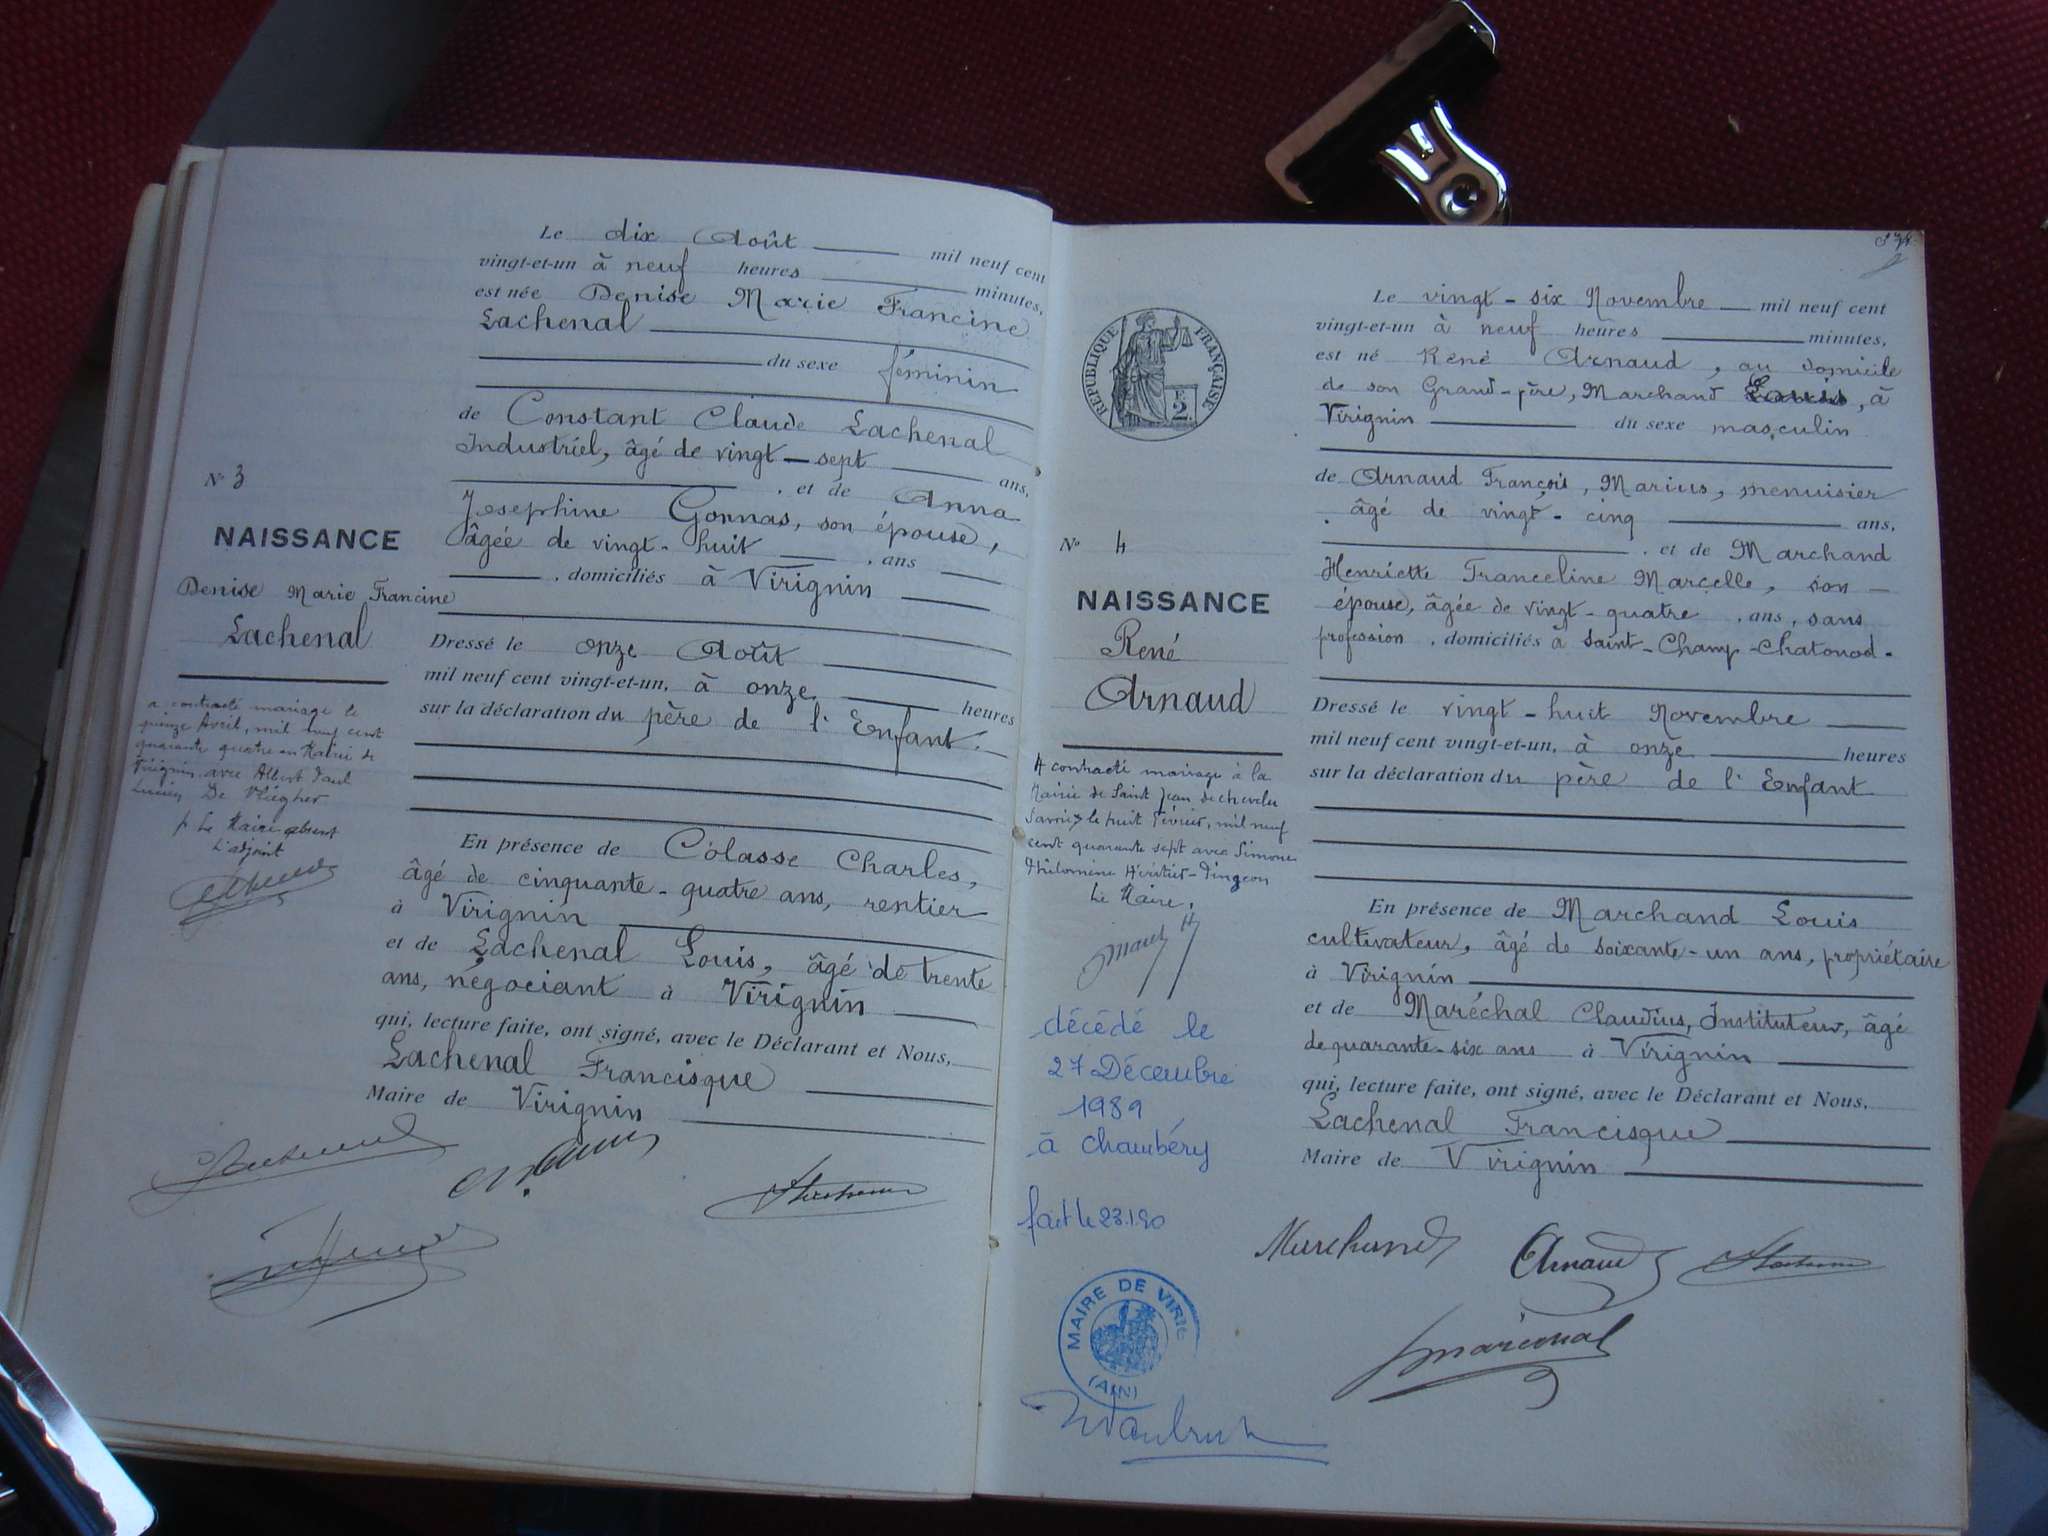 Le dix Août mil neuf cent
vingt-et-un à neuf heures minutes,
est née Denise Marie Francine
Lachenal
du sexe féminin
de Constant Claude Lachenal
Industriel, âgé de vingt-sept ans,
, et de Anna
Josephine Gonnas, son épouse,
âgée de vingt-huit , ans
, domiciliés à Virignin
Dressé le onze Août
mil neuf cent vingt-et-un, à onze heures
sur la déclaration du père de l'Enfant.
En présence de Colasse Charles,
âgé de cinquante-quatre ans, rentier
à Virignin
et de Lachenal Louis, âgé de trente
ans, négociant à Virignin
qui, lecture faite, ont signé, avec le Déclarant et Nous,
Lachenal Francisque
Maire de Virignin
N° 3
NAISSANCE
Denise Marie Francine
Lachenal
a contracté mariage le
quinze Avril, mil neuf cent
quarante quatre en Mairie de
Virignin avec Albert Paul
Lucien De
p Le Maire absent
L'adjoint
Le vingt-six Novembre mil neuf cent
vingt-et-un à neuf heures minutes,
est né René Arnaud, au domicile
de son Grand-père, Marchand Louis, à
Virignin du sexe masculin
de Arnaud François, Marius, menuisier
âgé de vingt-cinq ans,
, et de Marchand
Henriette Franceline Marcelle, son
épouse, âgée de vingt-quatre , ans, sans
profession , domiciliés à Saint-Champ-Chatonod.
Dressé le vingt-huit Novembre
mil neuf cent vingt-et-un, à onze heures
sur la déclaration du père de l'Enfant
En présence de Marchand Louis
cultivateur, âgé de soixante-un ans, propriétaire
à Virignin
et de Maréchal Claudius, Instituteur, âgé
de quarante-six ans à Virignin
qui, lecture faite, ont signé, avec le Déclarant et Nous,
Lachenal Francisque
Maire de Virignin
Marchand Arnaud
Maréchal
RÉPUBLIQUE FRANÇAISE
F. 2.
N° 4
NAISSANCE
René
Arnaud
A contracté mariage à la
Mairie de Saint Jean de Chevelu
Savoie le huit Février, mil neuf
cent quarante sept avec Simone
Philomène Héritier-Pingeon
Le Maire,
décédé le
27 Décembre
1989
à Chambéry
fait le 23.1.90
MAIRE DE VIRI
(AIN)